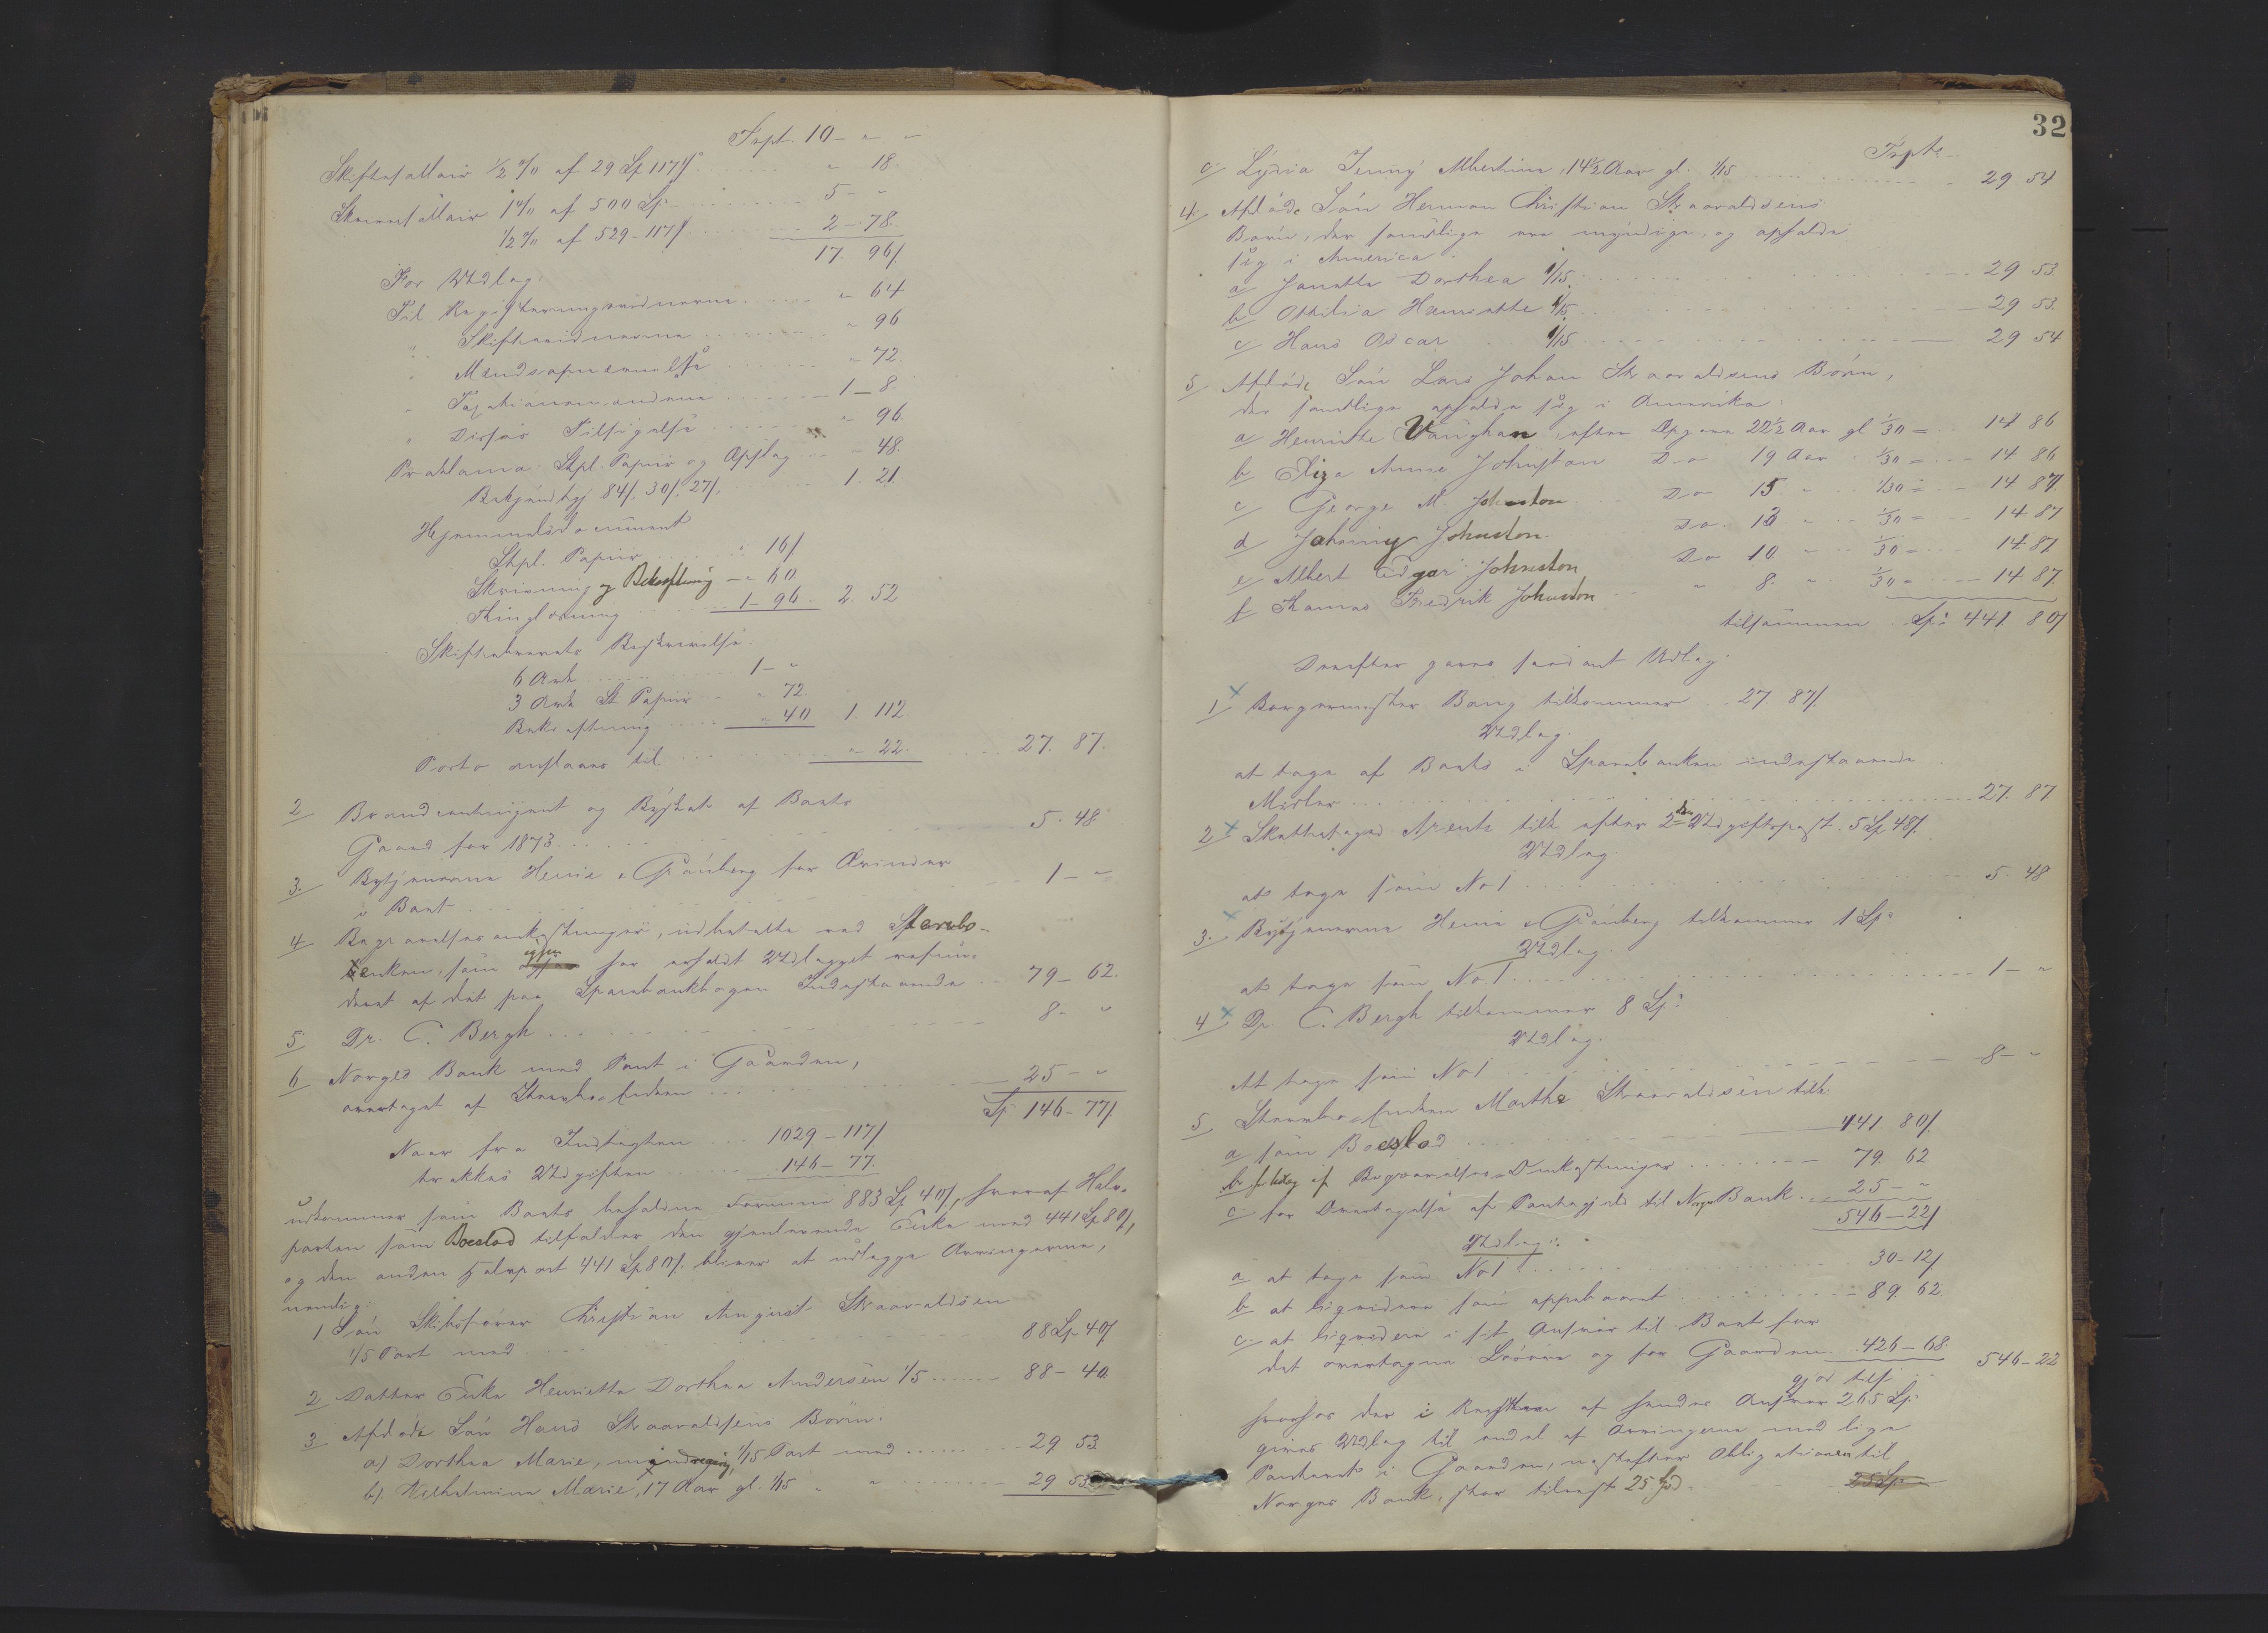 Trpt. 10 - " - "
Skiftesallair ½ % af 29 Sp 117 ß ........ " 18.
Skriversallair 1 % af 500 Sp. ........ 5 - "
½ % af 529 - 117 ß ........ 2 - 78.
17. 96 ß
For Udlæg:
Til Registreringsvidnerne ...... " 64
" Skiftevidnerne ........ " 96
" Mændsopnævnelse ........ " 72.
" Taxationsmændene ........ 1 - 8.
" Disses Tilsigelse ........ " 96.
Proklama: Stpl. Papiir og Opslag ... " 48.
Bekjendtgj. 84 ß, 30 ß, 27 ß, ........ 1. 21.
Hjemmelsdocument
Stpl. Papiir ...... " 16 ß
Skrivning og Bekræftning - " 60.
Thinglæsning ...... 1 - 96. 2. 52
Skiftebrevets Beskrivelse.
6 Ark ........ 1 - "
3 Ark St. Papiir ... " 72.
Bekræftning ..... " 40 1. 112
Porto anslaaes til ........ " 22. ..... 27. 87.
2 Brandcontingent og Byskat af Boets
Gaard for 1873 ........ 5. 48.
3. Bytjenerne Henie & Grønberg for Ærinder
i Boet ........ 1 - "
4 Begravelsesomkostninger, udbetalte ved Stervbo-
enken, som igjen har erholdt Udlægget refun-
deret af det paa Sparebankbogen Indestaaende ... 79 - 62.
5 Dr. C. Bergh ........ 8 - "
6 Norges Bank med Pant i Gaarden,
overtaget af Stervbo-Enken ........ 25 - "
Sp. 146 - 77 ß
Naar fra Indtægten ... 1029 - 117 ß
trækkes Udgiften ...... 146 - 77.
udkommer som Boets beholdne Formue 883 Sp 40 ß, hvoraf Halv-
parten som Boeslod tilfalder den gjenlevende Enke med 441 Sp 80 ß,
og den anden Halvpart 441 Sp 80 ß. bliver at udlægge Arvingerne,
nemlig:
1 Søn Skibsfører Christian August Skaaraldsen
1/5 Part med ........ 88 Sp 40 ß
2 Datter Enke Henriette Dorthea Andersen 1/5 ...... 88 - 40.
3 Afdøde Søn Hans Skaaraldsens Børn.
a) Dorthea Marie, myndig, 1/15 Part med ........ 29 53
b). Wilhelmine Marie, 17 Aar gl. 1/15 " " ........ 29 53
32
Trpt.
c/ Lydia Jenny Albertine, 14½ Aar gl. 1/15 ........ 29 54
4. Afdøde Søn Herman Christian Skaaraldsens
Børn, der samtlige ere myndige, og opholde
sig i America:
a Janette Dorthea 1/15. ........ 29 53.
b Othilia Henriette 1/15 ........ 29 53.
c Hans Oscar 1/15 ........ 29 54
5. Afdøde Søn Lars Johan Skaaraldsens Børn,
der samtlige opholde sig i Amerika:
a Henriette Vaughan, efter Opgave 22½ Aar gl 1/30 = .. 14 86
b Eliza Anne Johnston Do 19 Aar . 1/30 = ... 14. 86
c George M. Johnston ... Do 15 " ... 1/30 = ... 14 87.
d Johnny Johnston. Do. 13 " ... 1/30 = ... 14. 87
e Albert Edgar Johnston Do 10 " ... 1/30 = .... 14. 87
f Thomas Fredrik Johnston ... " 8. " 1/30 = .... 14 87.
tilsammen Sp: 441 80 ß
Derefter gjøres saadant Udlæg:
1 Borgermester Bang tilkommer . 27 87 ß.
Udlæg.
at tage af Boets i Sparebanken indestaaende
Midler ........ 27. 87
2 Skattefoged Arentz tilk. efter 2den Udgiftspost. 5 Sp 48 ß.
Udlæg
at tage som No 1 ........ 5. 48
3. Bytjenerne Henie & Grønberg tilkommer 1 Sp:
Udlæg
at tage som No 1 ........ 1 - "
4 Dr. C. Bergh tilkommer 8 Sp:
Udlæg.
At tage som No 1 ........ 8 - "
5 Stervbo-Enken Marthe Skaaraldsen tilk:
a som Boeslod ........ 441. 80 ß.
b for Udlæg af Begravelses-Omkostninger ........ 79. 62
c for Overtagelse af Pantegjeld til Norges Bank. .. 25 - "
546 - 22 ß
Udlæg:
a at tage som No 1 ........ 30 - 12 ß
b at liqvidere som oppebaaret ........ 89. 62.
c at liqvidere i sit Ansvar til Boet for
det overtagne Løsøre og for Gaarden. .. 426 - 68. 546 - 22
hvorhos der i Resten af hendes Ansvar 265 Sp.
gives Udlæg til endel af Arvingerne med lige
Panteret i Gaarden, næstefter Obligationen til
Norges Bank, stor tilrest 25 Spd